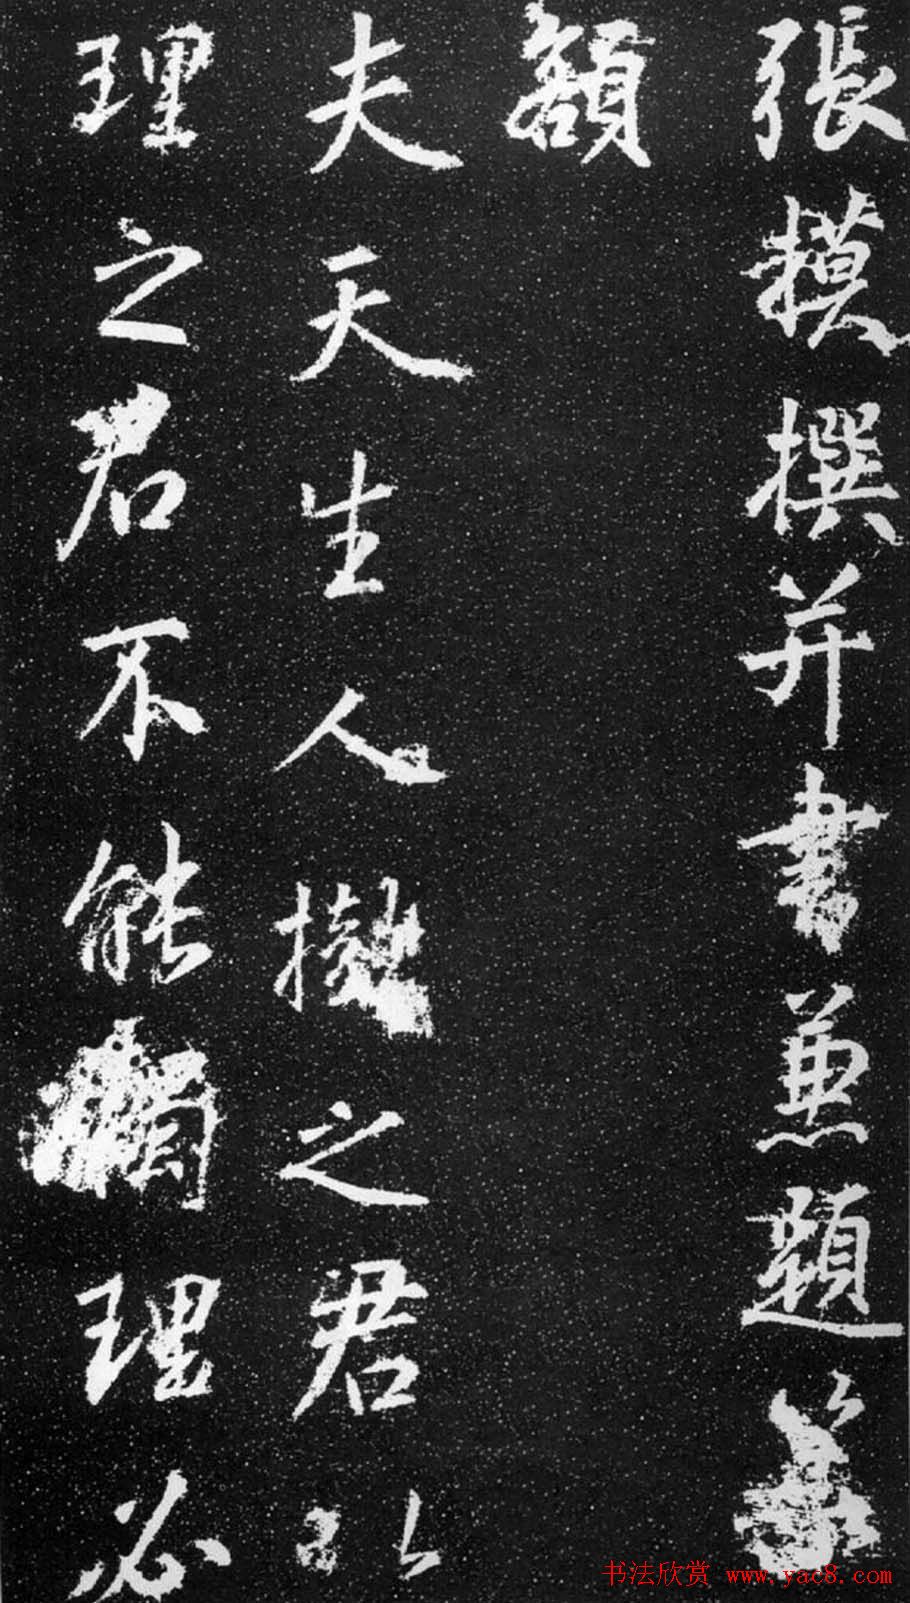 張模撰并書兼題
額
夫天生人樹之君以
理之君不能獨理必
书法欣赏 www.yac8.com